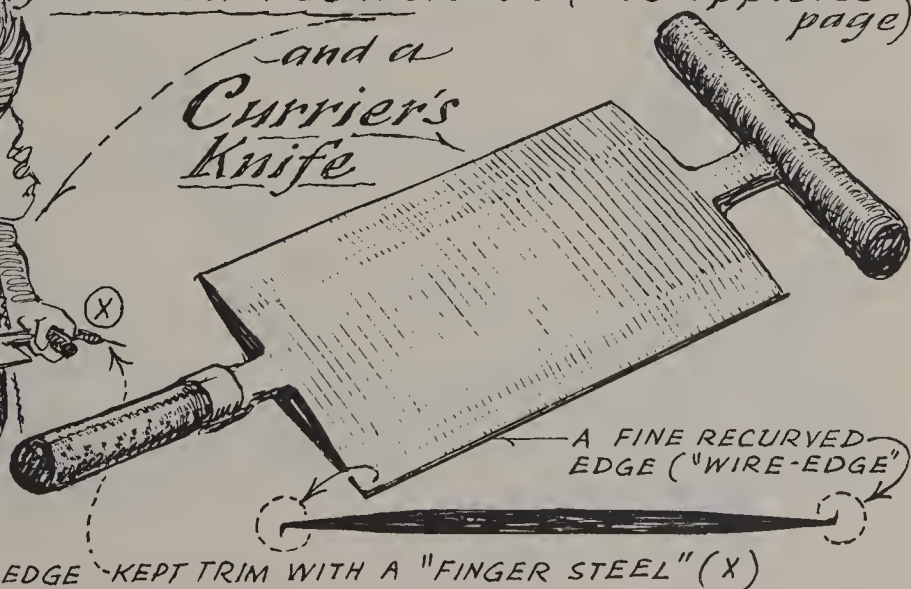 page)
and a
Currier's
Knife
X
A FINE RECURVED
EDGE ("WIRE-EDGE"
EDGE KEPT TRIM WITH A "FINGER STEEL" (X)